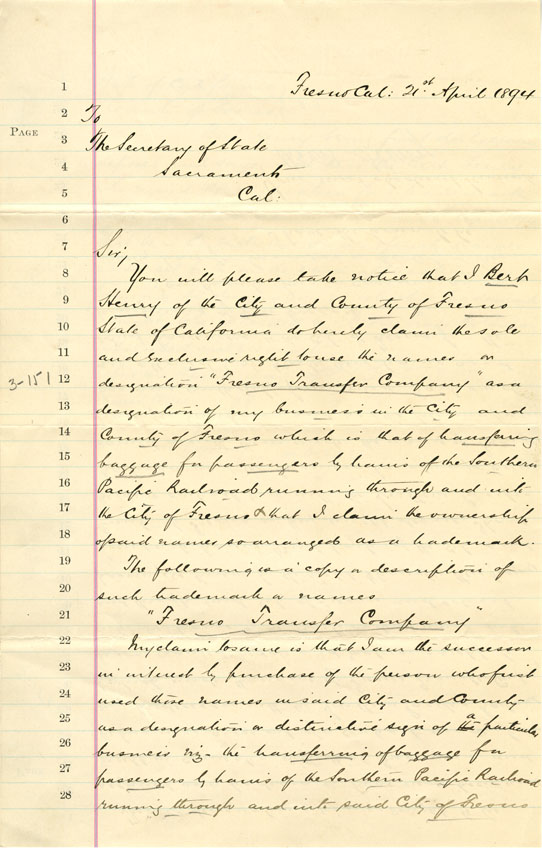 Fresno Cal: 21st April 1894
To
The Secretary of State
Sacramento
Cal:
Sir,
You will please take notice that I Bert
Henry of the City and County of Fresno
State of California do hereby claim the sole
and exclusive right to use the names or
designation "Fresno Transfer Company" as a
designation of my business in the City and
County of Fresno which is that of transfering
baggage for passengers by trains of the Southern
Pacific Railroad running through and into
the City of Fresno & that I claim the ownership
of said names so arranged as a trademark.
The following is a copy or description of
such trademark or names
"Fresno Transfer Company"
My claim to same is that I am the successor
in interest by purchase of the person who first
used those names in said City and County
as a designation or distinctive sign of a particular
business viz- the transferring of baggage for
passengers by trains of the Southern Pacific Railroad
running through and into said City of Fresno
PAGE
3-151
1
2
3
4
5
6
7
8
9
10
11
12
13
14
15
16
17
18
19
20
21
22
23
24
25
26
27
28